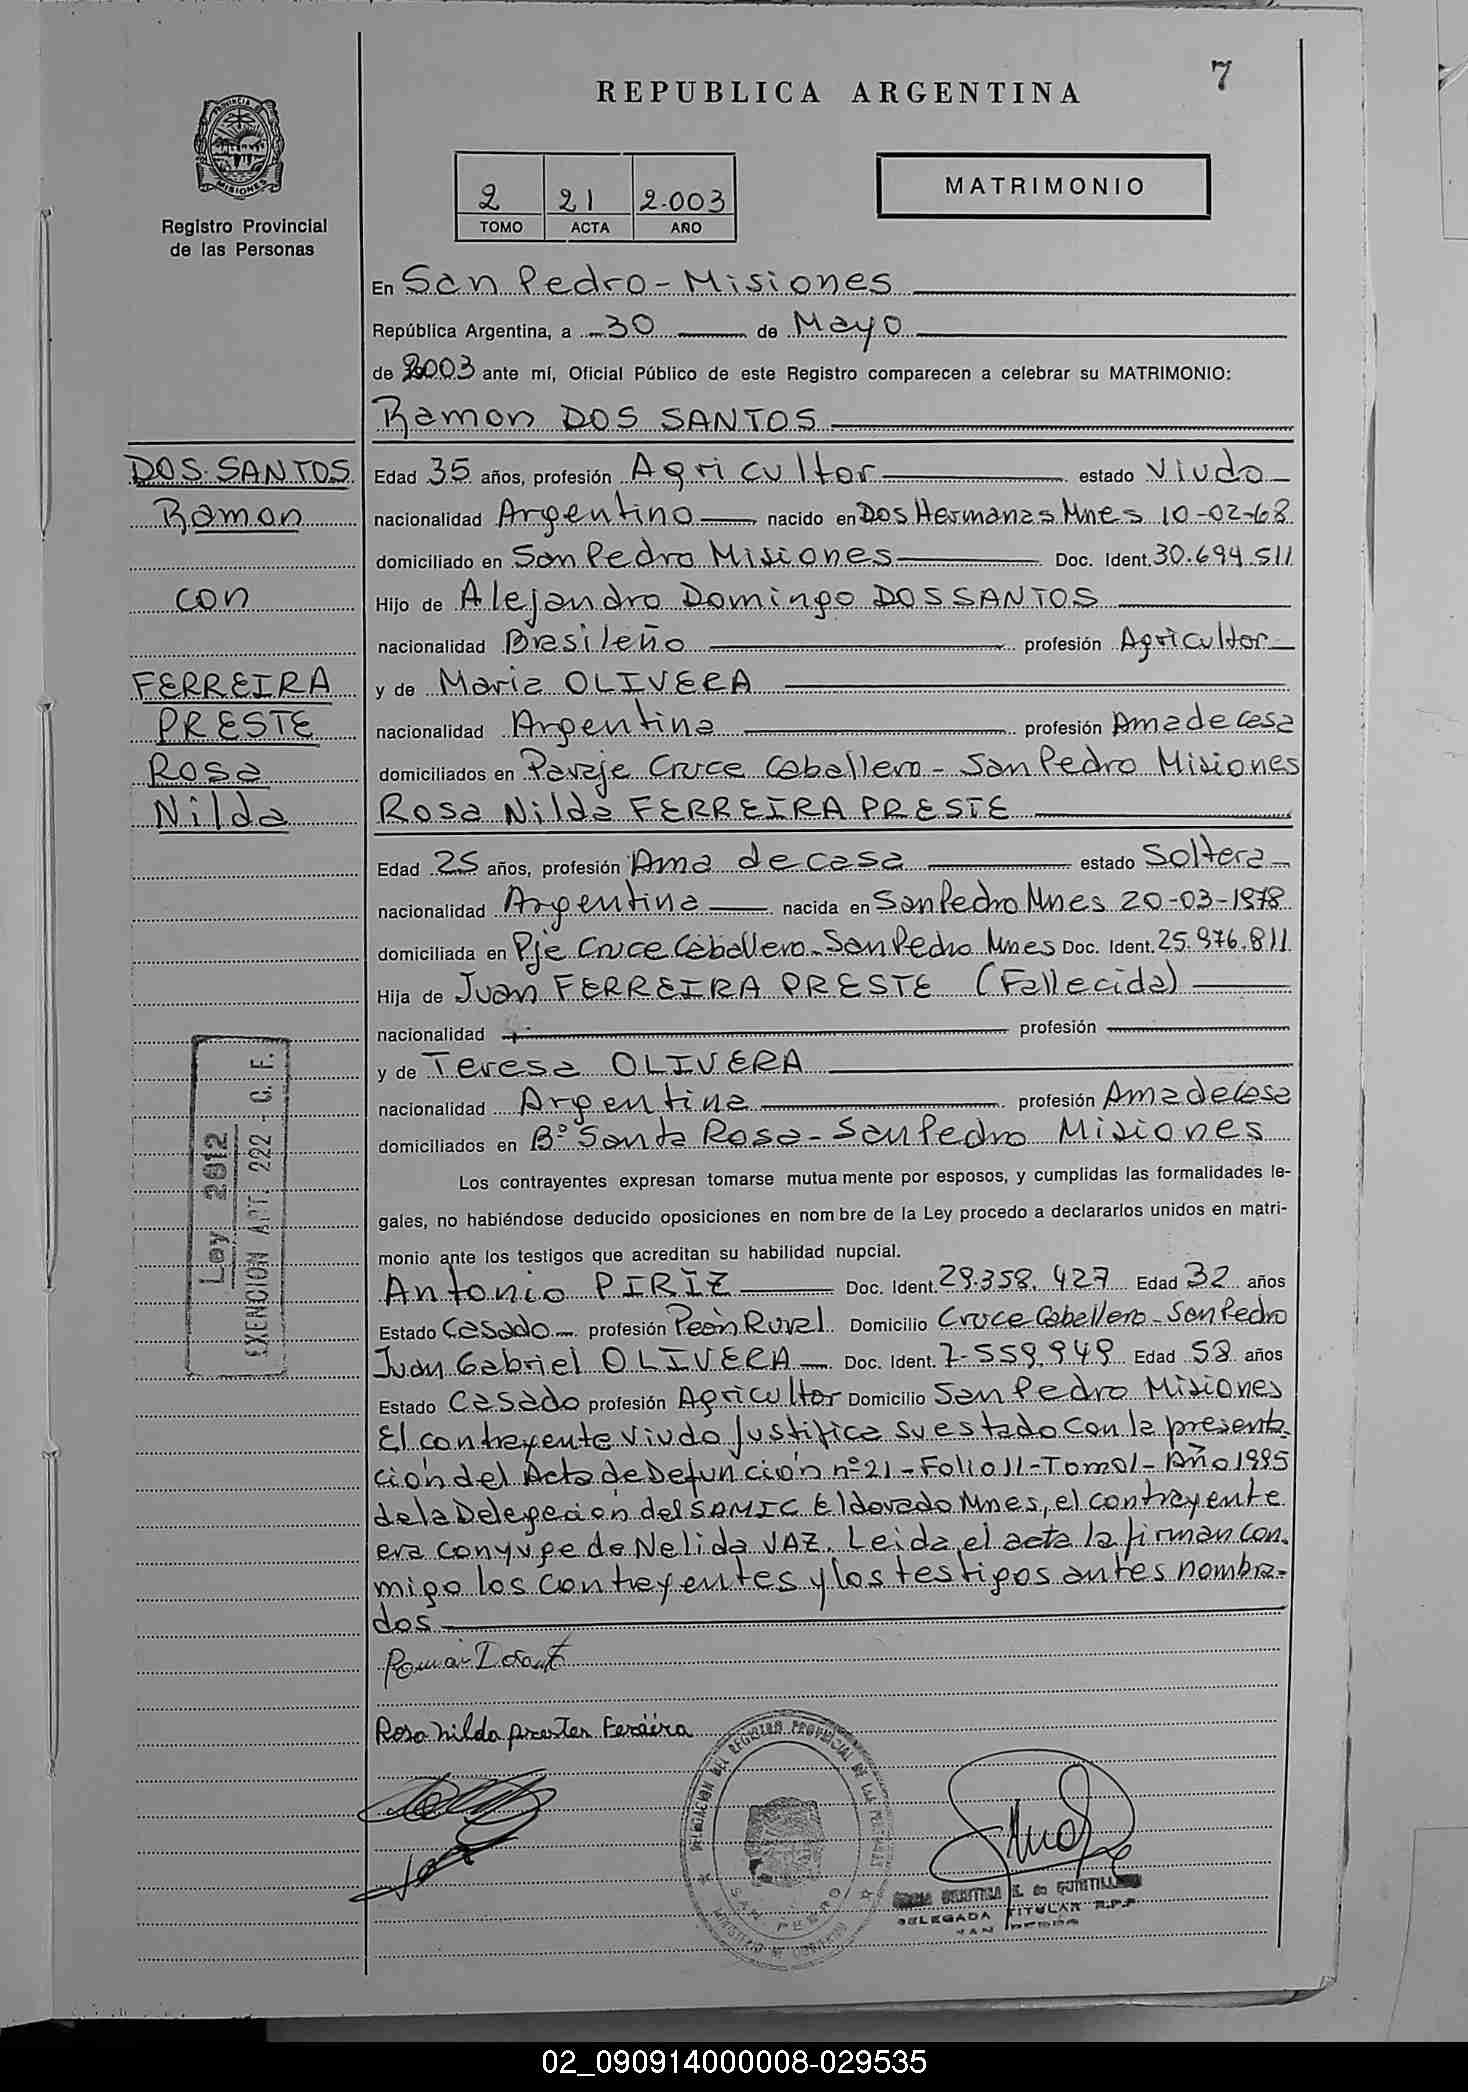 7
REPUBLICA ARGENTINA
PROVINCIA DE
MISIONES
Registro Provincial
de las Personas
2 21 2.003
TOMO ACTA AÑO
MATRIMONIO
En San Pedro - Misiones
República Argentina, a 30 de Mayo
de 2003 ante mí, Oficial Público de este Registro comparecen a celebrar su MATRIMONIO:
Ramon DOS SANTOS
DOS SANTOS
Ramon
con
FERREIRA
PRESTE
Rosa
Nilda
Edad 35 años, profesión Agricultor estado Viudo
nacionalidad Argentino nacido en Dos Hermanas Mnes 10-02-68
domiciliado en San Pedro Misiones Doc. Ident. 30.694.511
Hijo de Alejandro Domingo DOS SANTOS
nacionalidad Brasileño profesión Agricultor
y de Maria OLIVERA
nacionalidad Argentina profesión Ama de Casa
domiciliados en Paraje Cruce Caballero - San Pedro Misiones
Rosa Nilda FERREIRA PRESTE
Edad 25 años, profesión Ama de casa estado Soltera
nacionalidad Argentina nacida en San Pedro Mnes 20-03-1978
domiciliada en Pje Cruce Caballero - San Pedro Mnes Doc. Ident. 25.976.811
Hija de Juan FERREIRA PRESTE (Fallecida)
nacionalidad profesión
y de Teresa OLIVERA
nacionalidad Argentina profesión Ama de Casa
domiciliados en Bº Santa Rosa - San Pedro Misiones
Los contrayentes expresan tomarse mutua mente por esposos, y cumplidas las formalidades le-
gales, no habiéndose deducido oposiciones en nom bre de la Ley procedo a declararlos unidos en matri-
monio ante los testigos que acreditan su habilidad nupcial.
Antonio PIRIZ Doc. Ident. 29.358.427 Edad 32 años
Estado Casado profesión Peón Rural Domicilio Cruce Caballero - San Pedro
Juan Gabriel OLIVERA Doc. Ident. 7.559.949 Edad 58 años
Estado Casado profesión Agricultor Domicilio San Pedro Misiones
El contrayente viudo Justifica su estado con la presenta-
ción del Acta de Defunción nº 21 - Folio 11 - Tomo 1 - Año 1995
de la Delegación del SAMIC Eldorado Mnes, el contrayente
era conyuge de Nelida VAZ. Leida el acta la firman con-
migo los contrayentes y los testigos antes nombra-
dos
Ley 2812
EXENCION ART. 222 - C. F.
Rosa nilda presten Fereira
DELEGACION DEL REGISTRO PROVINCIAL DE LAS PERSONAS
SAN PEDRO
MINISTERIO DE GOBIERNO
DELEGADA TITULAR R.P.P.
SAN PEDRO
02_090914000008-029535